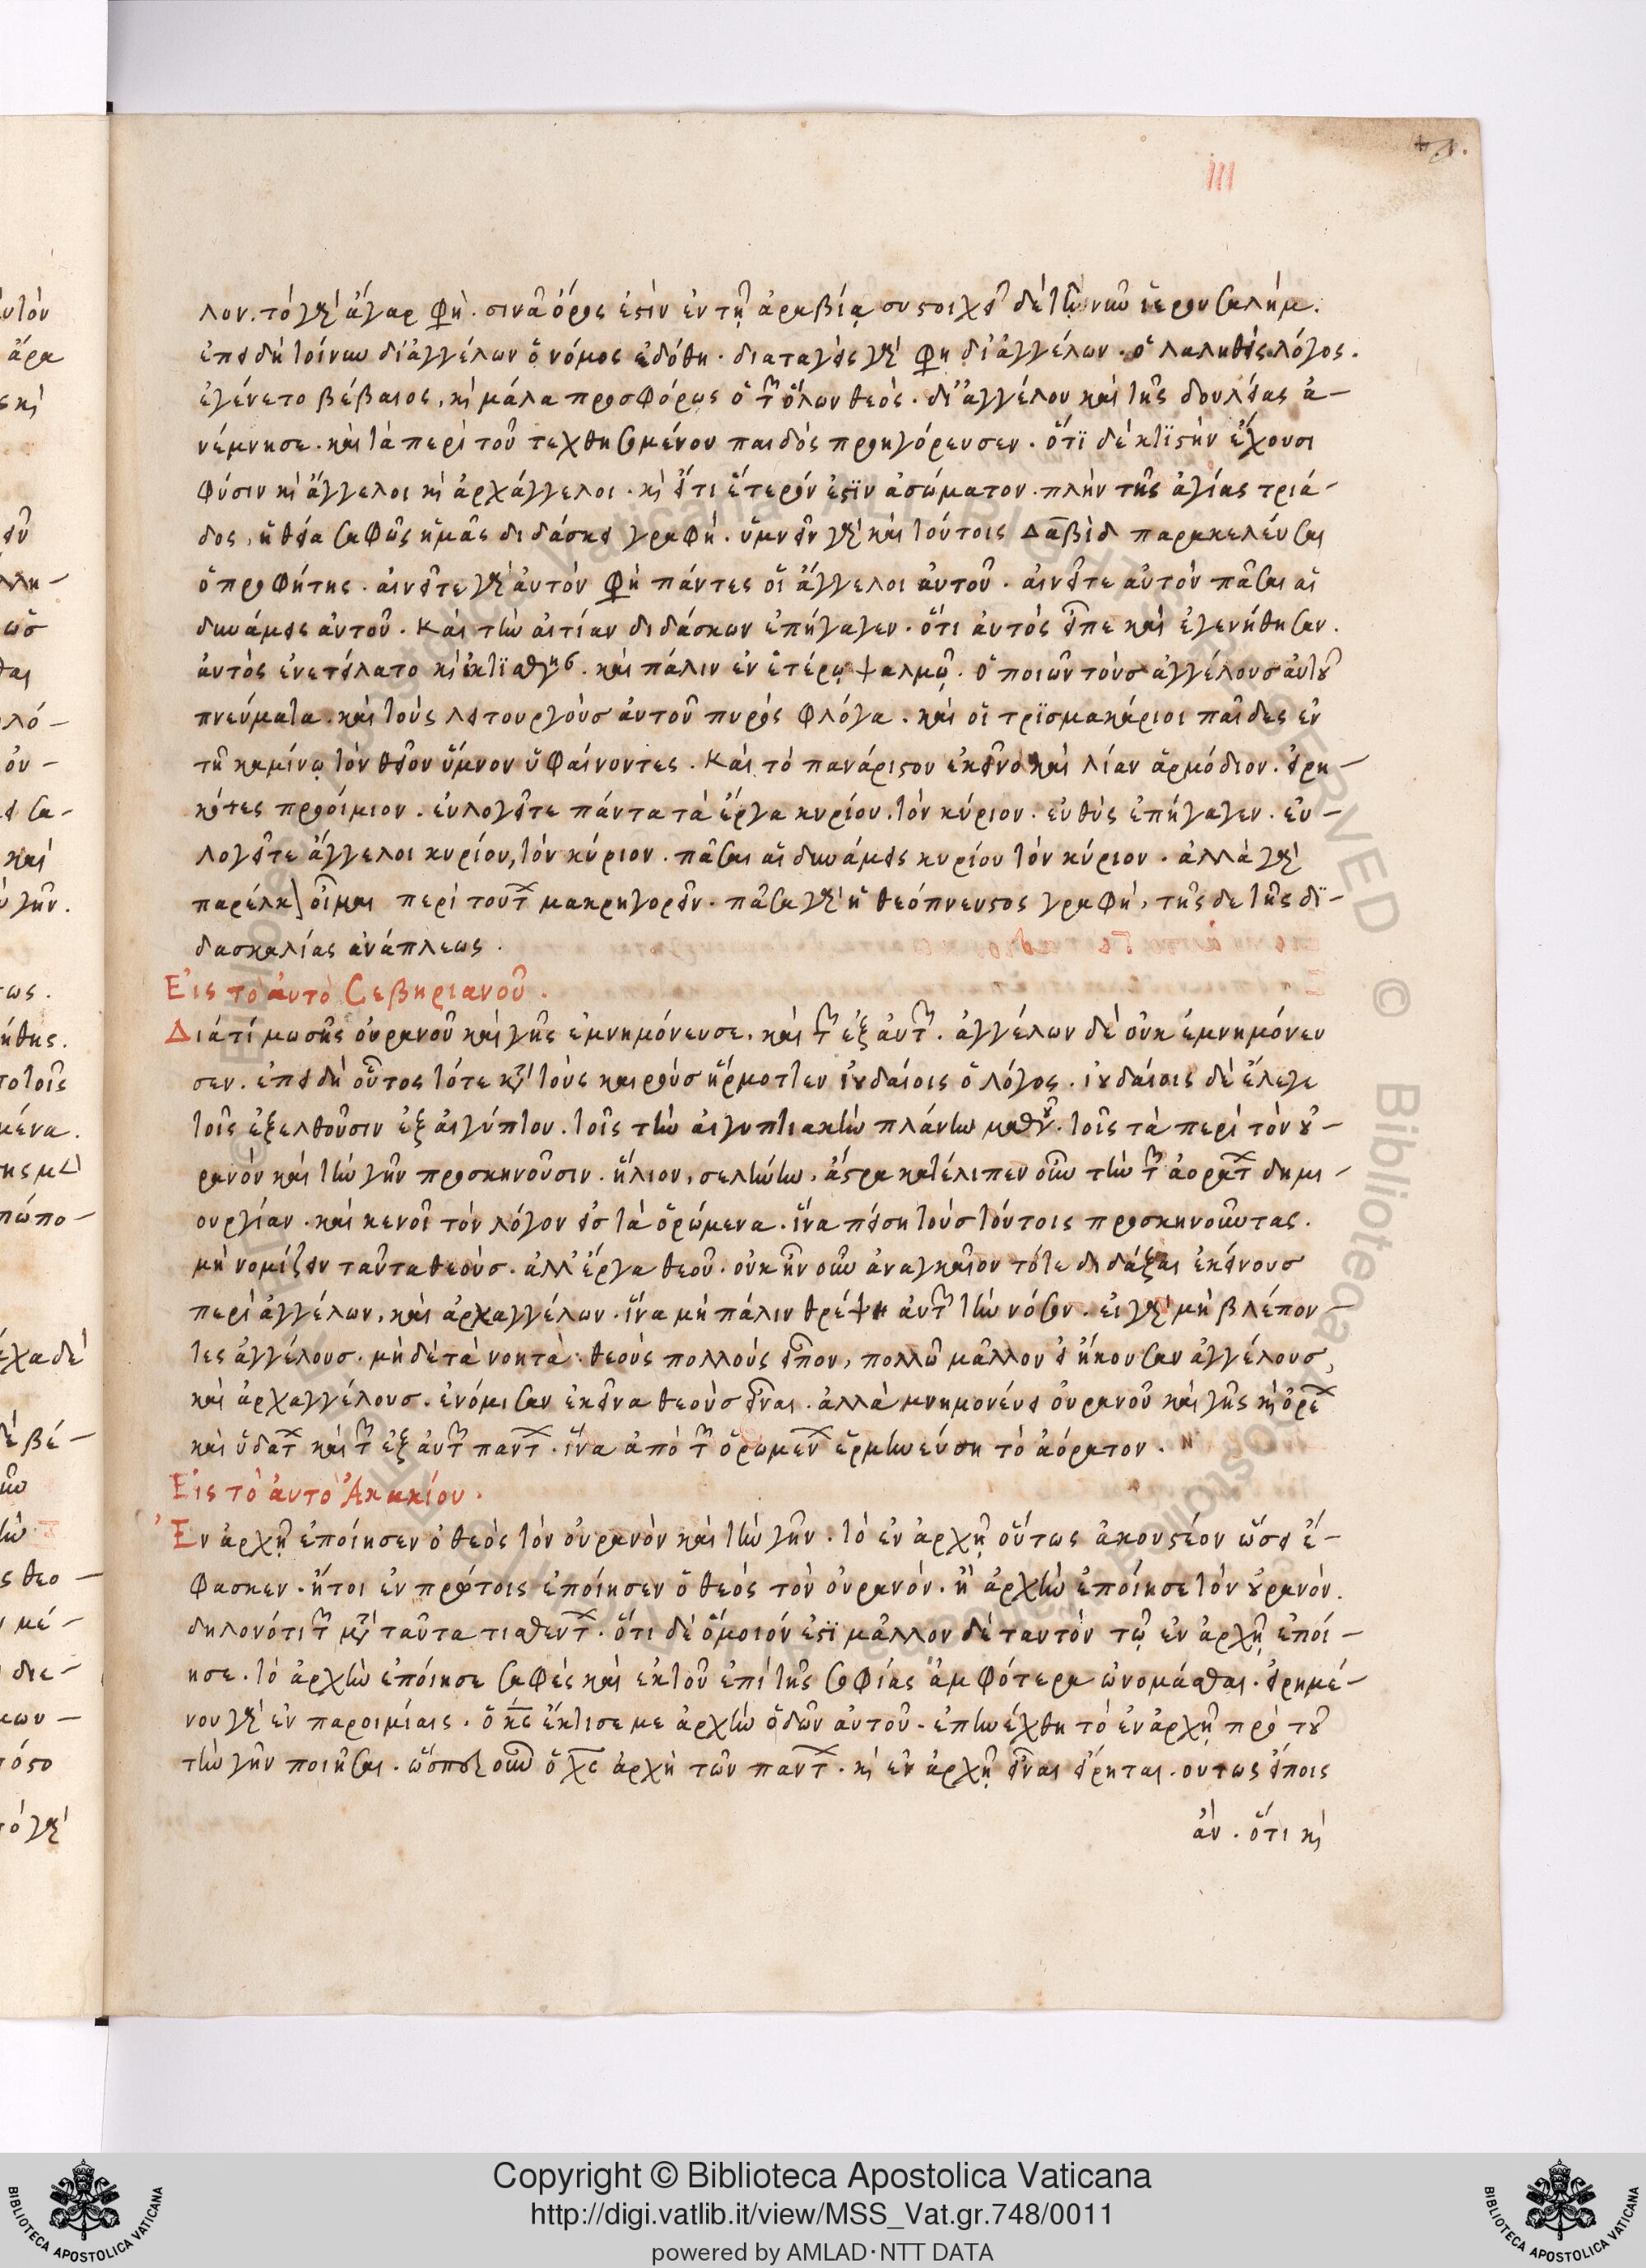 III
λον. τὸ γὰρ ἄγαρ φησὶ. σινᾶ ὄρος ἐστὶν ἐν τῇ ἀραβίᾳ συστοιχεῖ δὲ τῷ νῦν ἱερουσαλήμ.
ἐπειδὴ τοίνυν δι' ἀγγέλων ὁ νόμος ἐδόθη. διαταγεὶς γὰρ φησι δι' ἀγγέλων. ὁ λαληθεὶς λόγος.
ἐγένετο βέβαιος, καὶ μάλα προσφόρως ὁ τῶν ὅλων θεὸς. δι' ἀγγέλου καὶ τῆς δουλείας ἀ-
νέμνησε. καὶ τὰ περὶ τοῦ τεχθησομένου παιδὸς προηγόρευσεν. ὅτι δὲ κτιστὴν ἔχουσι
φύσιν καὶ ἄγγελοι καὶ ἀρχάγγελοι. καὶ εἴ τι ἕτερόν ἐστιν ἀσώματον. πλὴν τῆς ἁγίας τριά-
δος, ἡ θεία σαφῶς ἡμᾶς διδάσκει γραφή. ὑμνεῖν γὰρ καὶ τούτοις Δαβὶδ παρακελεύεται
ὁ προφήτης. αἰνεῖτε γὰρ αὐτὸν φησὶ πάντες οἱ ἄγγελοι αὐτοῦ. αἰνεῖτε αὐτὸν πᾶσαι αἱ
δυνάμεις αὐτοῦ. Καὶ τὴν αἰτίαν διδάσκων ἐπήγαγεν. ὅτι αὐτὸς εἶπε καὶ ἐγενήθησαν.
αὐτὸς ἐνετείλατο καὶ ἐκτίσθησαν. καὶ πάλιν ἐν ἑτέρῳ ψαλμῷ. ὁ ποιῶν τοὺς ἀγγέλους αὐτοῦ
πνεύματα. καὶ τοὺς λειτουργοὺς αὐτοῦ πυρὸς φλόγα. καὶ οἱ τρισμακάριοι παῖδες ἐν
τῇ καμίνῳ τὸν θεῖον ὕμνον ὑφαίνοντες. Καὶ τὸ πανάριστον ἐκεῖνο καὶ λίαν ἁρμόδιον. εἰρη-
κότες προοίμιον. εὐλογεῖτε πάντα τὰ ἔργα κυρίου. τὸν κύριον. εὐθὺς ἐπήγαγεν. εὐ-
λογεῖτε ἄγγελοι κυρίου, τὸν κύριον. πᾶσαι αἱ δυνάμεις κυρίου τὸν κύριον. ἀλλὰ γὰρ
παρέλκειν οἶμαι περὶ τούτων μακρηγορεῖν. πᾶσα γὰρ ἡ θεόπνευστος γραφή, τῆς δε τῆς δι-
δασκαλίας ἀνάπλεως.
Εἰς τὸ αὐτὸ Σεβηριανοῦ.
Διατί μωσῆς οὐρανοῦ καὶ γῆς ἐμνημόνευσε. καὶ τῶν ἐξ αὐτῶν. ἀγγέλων δὲ οὐκ ἐμνημόνευ
σεν. ἐπειδὴ οὗτος τότε κατὰ τοὺς καιροὺς ἥρμοττεν ἰουδαίοις ὁ λόγος. ἰουδαίοις δὲ ἔλεγε
τοῖς ἐξελθοῦσιν ἐξ αἰγύπτου. τοῖς τὴν αἰγυπτιακὴν πλάνην μαθοῦσι. τοῖς τὰ περὶ τὸν οὐ-
ρανὸν καὶ τὴν γῆν προσκηνοῦσιν. ἥλιον, σελήνην, ἄστρα κατέλιπεν οὖν τὴν τῶν ἀοράτων δημι-
ουργίαν. καὶ κενοῖ τὸν λόγον εἰς τὰ ὁρώμενα. ἵνα πείσῃ τοὺς τούτοις προσκηνοῦντας.
μὴ νομίζειν ταῦτα θεοὺς. ἀλλ' ἔργα θεοῦ. οὐκ ἦν οὖν ἀναγκαῖον τότε διδάξαι ἐκείνους
περὶ ἀγγέλων, καὶ ἀρχαγγέλων. ἵνα μὴ πάλιν θρέψῃ αὐτῶν τὴν νόσον. εἰ γὰρ μὴ βλέπον-
τες ἀγγέλους. μὴ δὲ τὰ νοητὰ. θεοὺς πολλοὺς εἶπον, πολλῷ μᾶλλον εἰ ἤκουσαν ἀγγέλους,
καὶ ἀρχαγγέλους. ἐνόμισαν ἐκεῖνα θεοὺς εἶναι. ἀλλὰ μνημονεύει οὐρανοῦ καὶ γῆς καὶ ὀρέων
καὶ ὑδάτων καὶ τῶν ἐξ αὐτῶν πάντων. ἵνα ἀπὸ τῶν ὁρωμένων ἑρμηνεύσῃ τὸ ἀόρατον.
Εἰς τὸ αὐτὸ Ἀκακίου.
Ἐν ἀρχῇ ἐποίησεν ὁ θεὸς τὸν οὐρανὸν καὶ τὴν γῆν. τὸ ἐν ἀρχῇ οὕτως ἀκουστέον ὡσεὶ ἔ-
φασκεν. ἤτοι ἐν πρώτοις ἐποίησεν ὁ θεὸς τὸν οὐρανόν. ἢ ἀρχὴν ἐποίησε τὸν οὐρανόν.
δηλονότι τῶν μετὰ ταῦτα τιθέντων. ὅτι δὲ ὅμοιόν ἐστι μᾶλλον δὲ ταυτὸν τῷ ἐν ἀρχῇ ἐποί-
ησε. τὸ ἀρχὴν ἐποίησε σαφὲς καὶ ἐκ τοῦ ἐπὶ τῆς σοφίας ἀμφότερα ὠνομάσθαι. εἰρημέ-
νου γὰρ ἐν παροιμίαις. ὁ κς ἔκτισε με ἀρχὴν ὁδῶν αὐτοῦ. ἐπηνέχθη τὸ ἐν ἀρχῇ πρὸ τοῦ
τὴν γῆν ποιῆσαι. ὥσπερ οὖν ὁ χς ἀρχὴ τῶν πάντων. καὶ ἐν ἀρχῇ εἶναι εἴρηται. ουτως εἴποις
ἄν. ὅτι καὶ
Copyright © Biblioteca Apostolica Vaticana
http://digi.vatlib.it/view/MSS_Vat.gr.748/0011
powered by AMLAD·NTT DATA
BIBLIOTECA APOSTOLICA VATICANA
BIBLIOTECA APOSTOLICA VATICANA